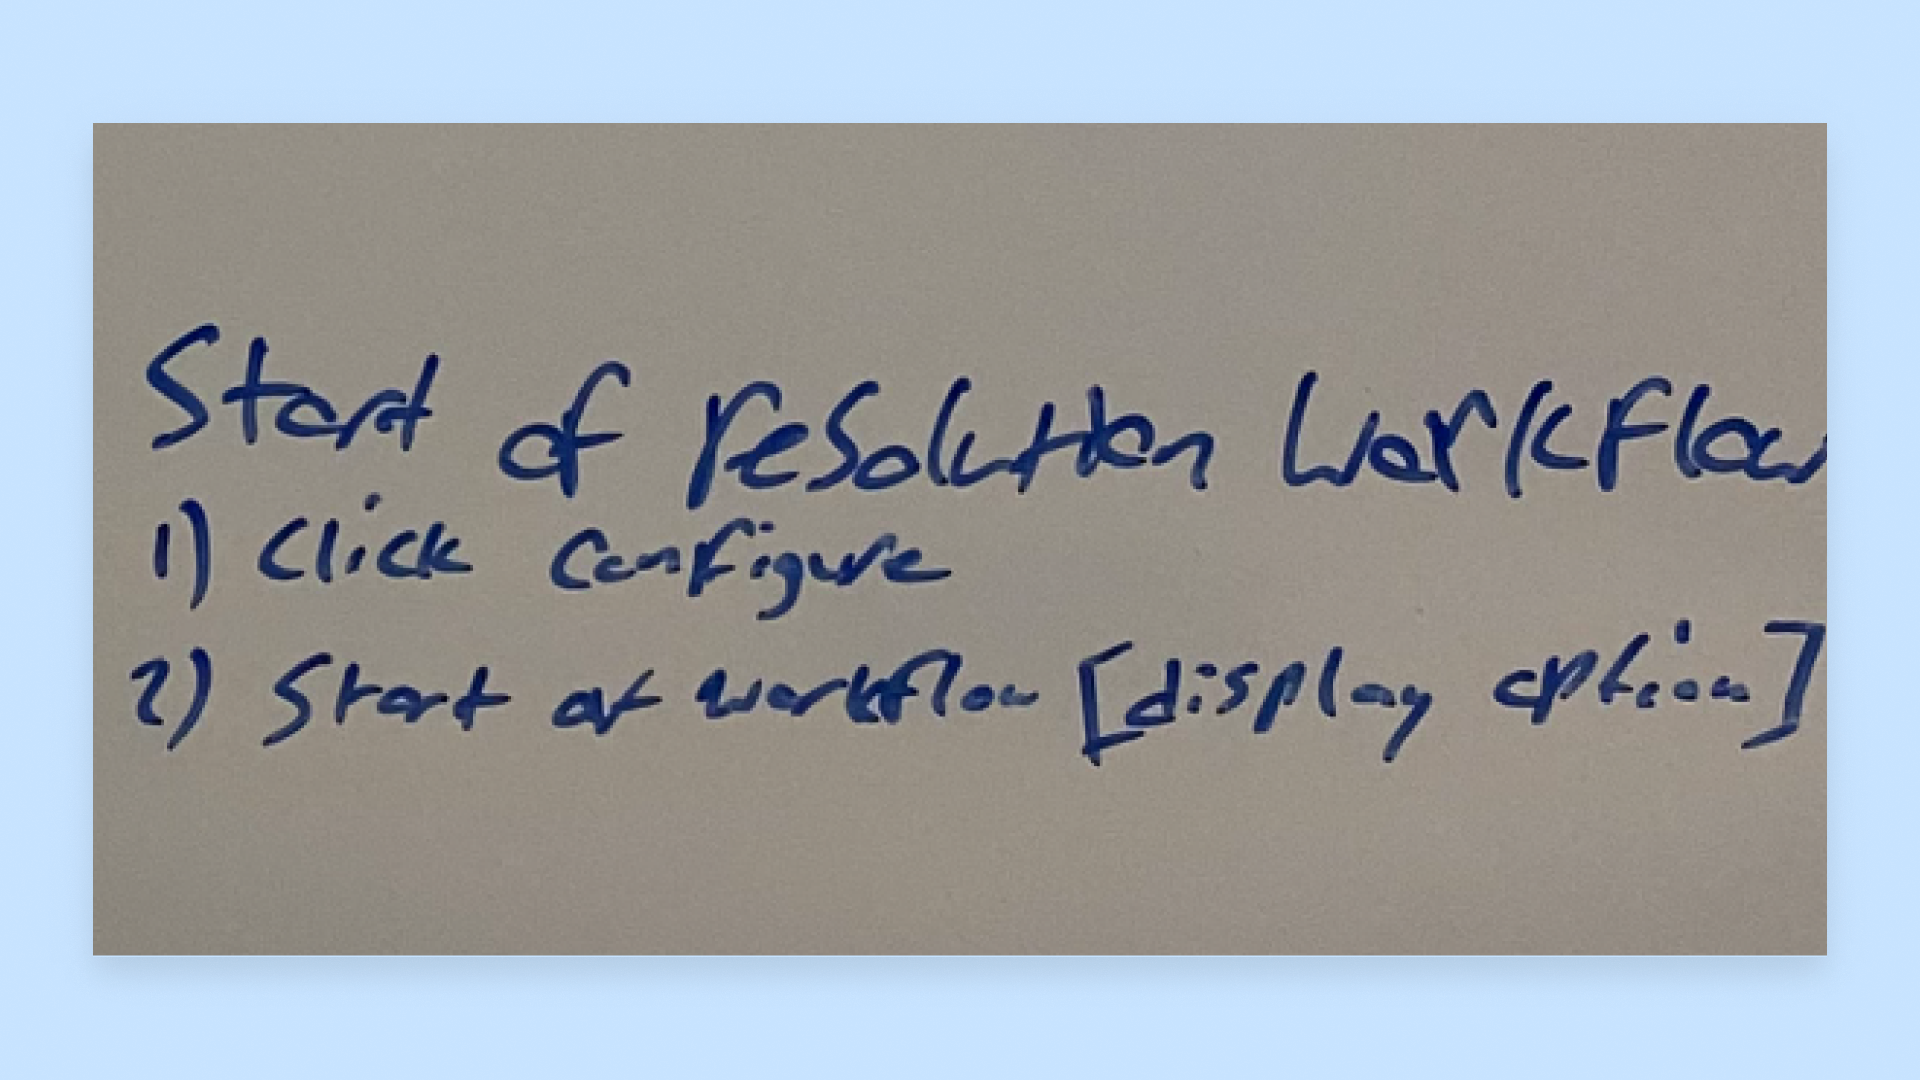 Start of resolution workflow
1) Click Configure
2) Start of workflow [display option]